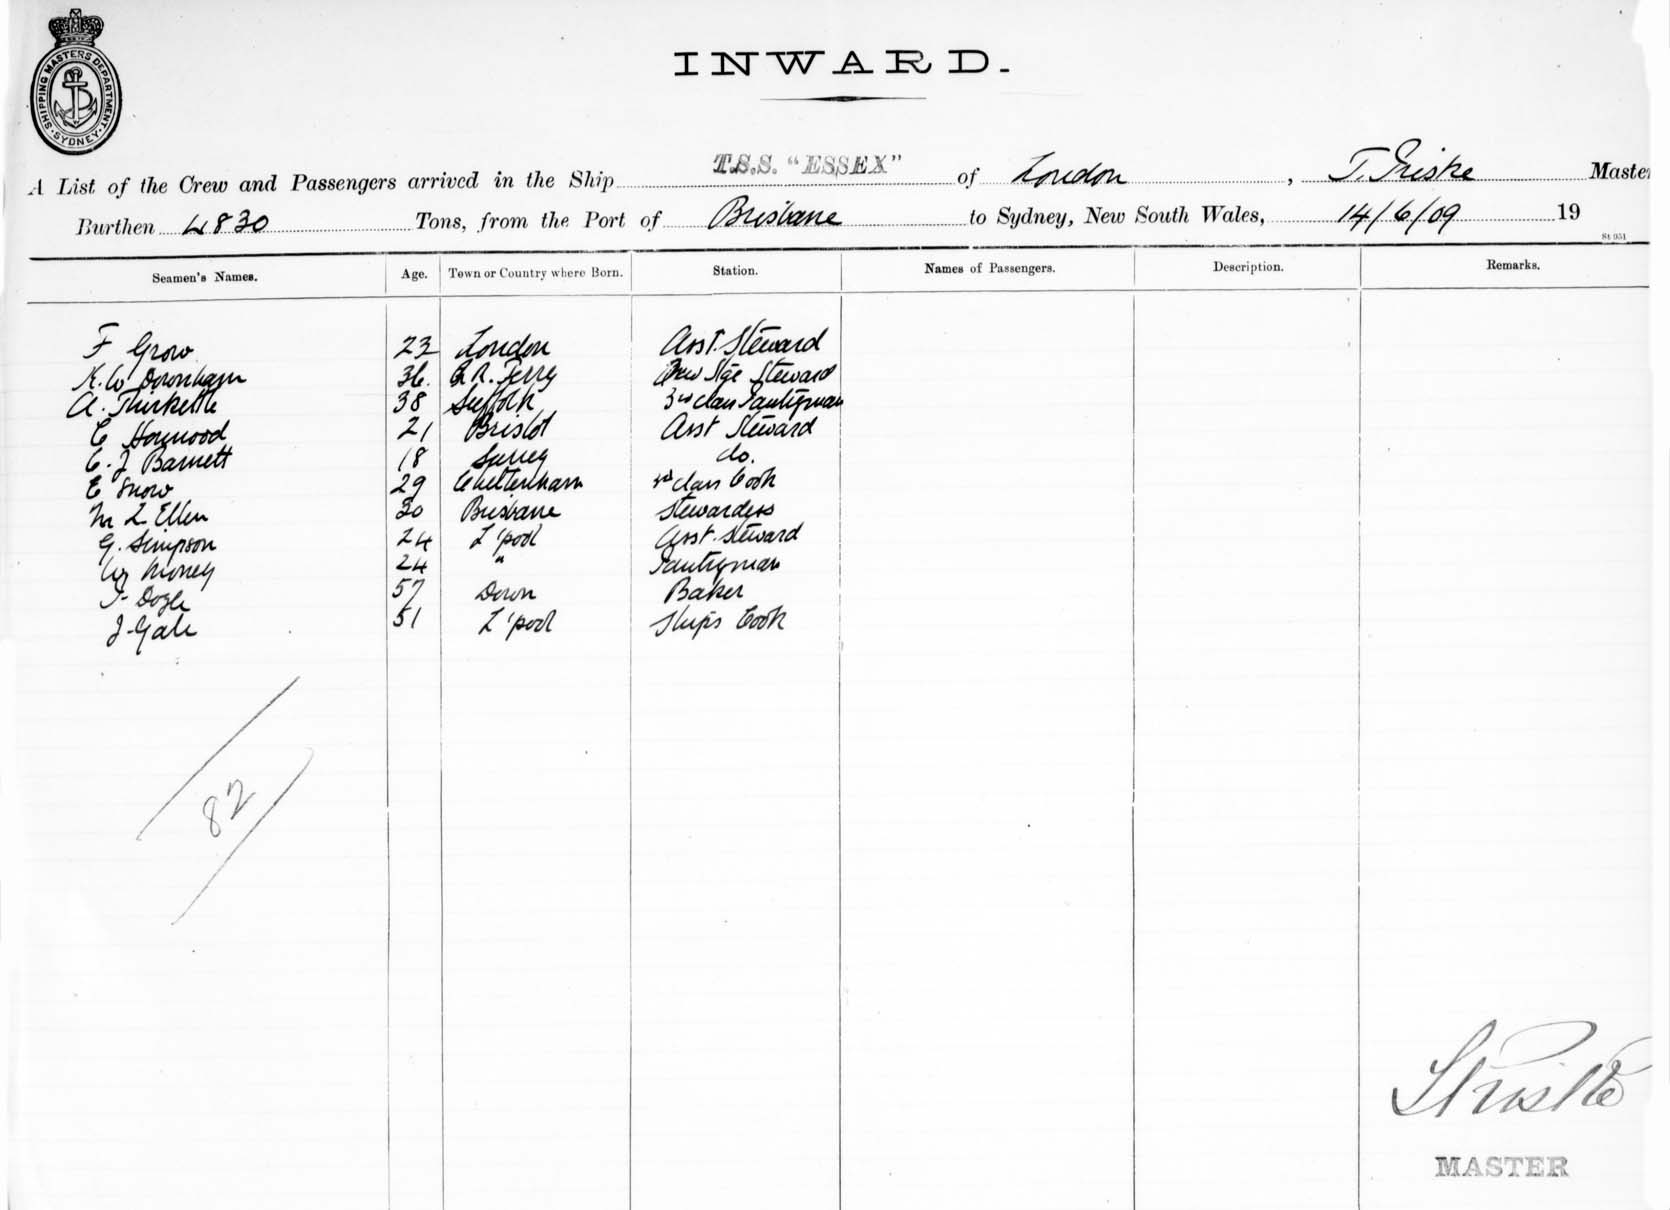 SHIPPING MASTERS DEPARTMENT
SYDNEY
INWARD.
A List of the Crew and Passengers arrived in the Ship T.S.S. "ESSEX" of London, Master
Burthen 4830 Tons, from the Port of Brisbane to Sydney, New South Wales, 14/6/09 19
St 951
Seamen's Names. Age. Town or Country where Born. Station. Names of Passengers. Description. Remarks.
F Grow 23 London Asst. Steward
K. W Downham 36. Steward
A. Thirkettle 38 Suffolk 3rd class Pantryman
C Horwood 21 Bristol Asst Steward
C. J Barnett 18 Surrey do.
E Snow 29 Cheltenham class Cook
M L Ellen 30 Brisbane Stewardess
G. Simpson 24 L'pool Asst. Steward
W Money 24 " Pantryman
57 Down Baker
J. Gale 51 L'pool Ships Cook
82
MASTER